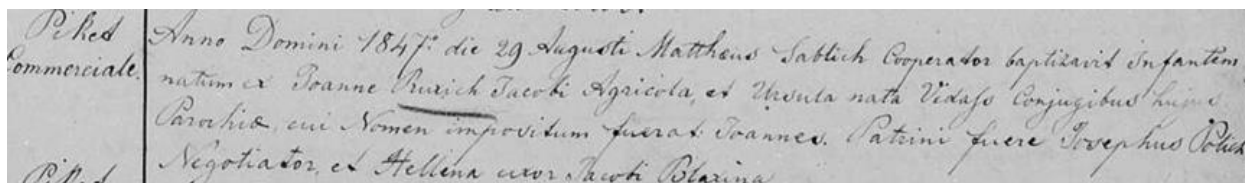 Piket
Commerciale.
Anno Domini 1847º die 29 Augusti Matthæus Sablich Cooperator baptizavit Infantem
natum ex Joanne Ruxich Jacobi Agricola, et Ursula nata Vidass Conjugibus hujus
Parochiæ, cui Nomen impositum fuerat Joannes. Patrini fuere Josephus Polich
Negotiator, et Hellena uxor Jacobi Blaxina
Piket